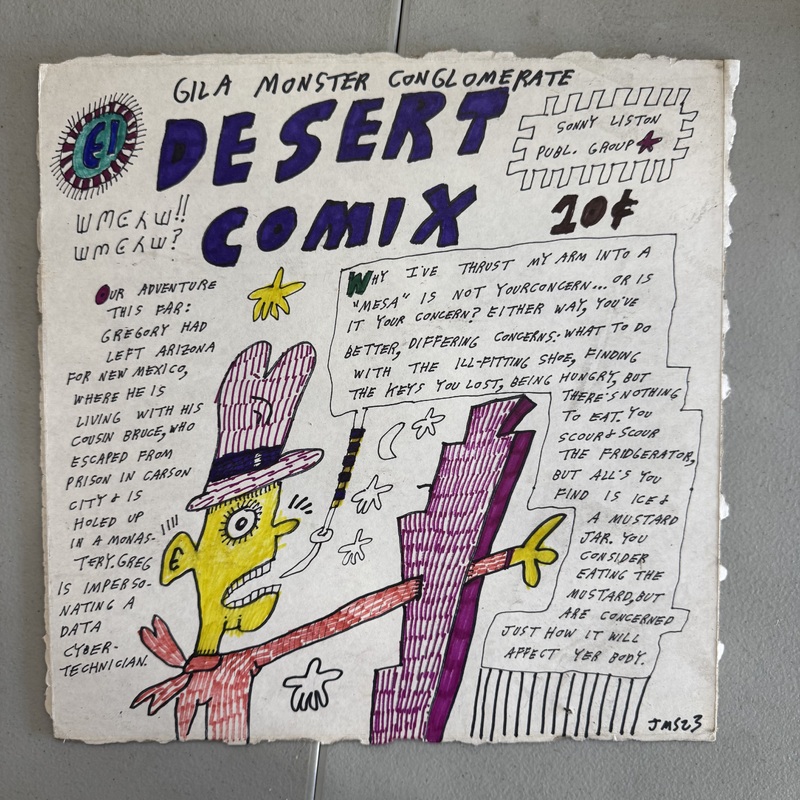 GILA MONSTER CONGLOMERATE
DESERT
COMIX
SONNY LISTON
PUBL. GROUP
10¢
OUR ADVENTURE
THIS FAR:
GREGORY HAD
LEFT ARIZONA
FOR NEW MEXICO,
WHERE HE IS
LIVING WITH HIS
COUSIN BRUCE, WHO
ESCAPED FROM
PRISON IN CARSON
CITY & IS
HOLED UP
IN A MONAS-
TERY. GREG
IS IMPERSO-
NATING A
DATA
CYBER-
TECHNICIAN.
WHY I'VE THRUST MY ARM INTO A
"MESA" IS NOT YOUR CONCERN... OR IS
IT YOUR CONCERN? EITHER WAY, YOU'VE
BETTER, DIFFERING CONCERNS: WHAT TO DO
WITH THE ILL-FITTING SHOE, FINDING
THE KEYS YOU LOST, BEING HUNGRY, BUT
THERE'S NOTHING
TO EAT. YOU
SCOUR & SCOUR
THE FRIDGERATOR,
BUT ALL'S YOU
FIND IS ICE &
A MUSTARD
JAR. YOU
CONSIDER
EATING THE
MUSTARD, BUT
ARE CONCERNED
JUST HOW IT WILL
AFFECT YER BODY.
JMS23